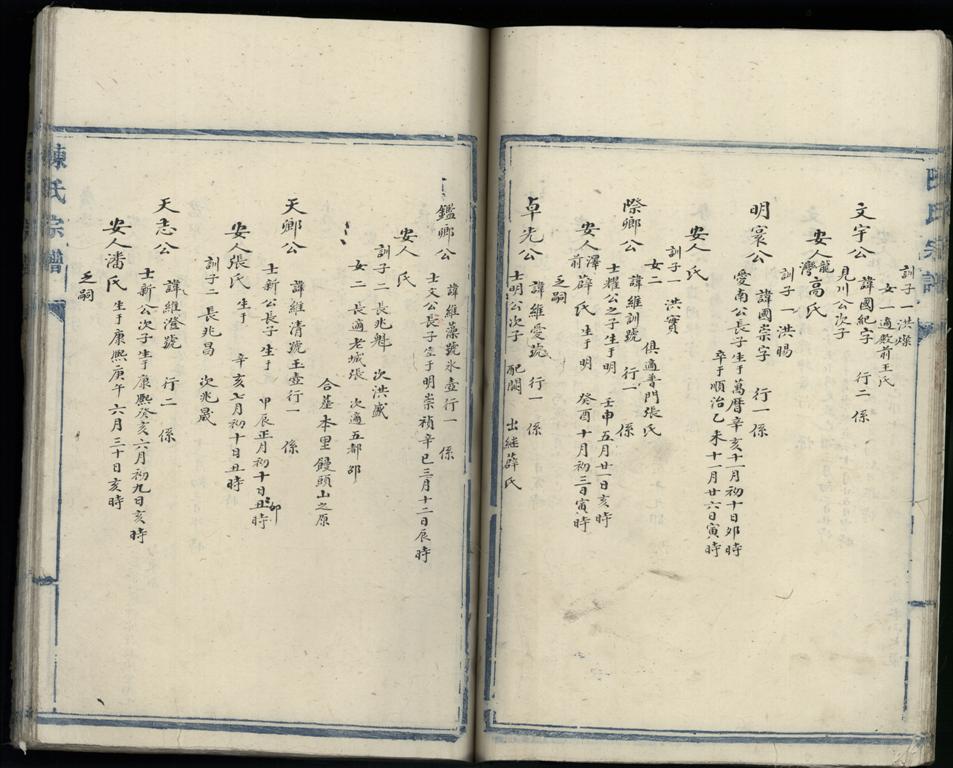 訓子一洪燦
女一適殿前王氏
文宇公
諱國紀字 行二 係
見川公次子
安人龍灣高氏
訓子一洪賜
明寰公
諱國崇字 行一 係
愛南公長子生于萬曆辛亥十一月初十日卯時
卒于順治乙未十一月廿六日寅時
安人 氏
訓子一洪寳
女二 俱適普門張氏
際鄉公
諱維訓號 行一 係
士耀公之子生于明 壬申五月廿一日亥時
安人澤前薛氏 生于明 癸酉十月初三日寅時
乏嗣
卓光公
諱維愛號 行一 係
士明公次子 配闕 出繼薛氏
鑑鄉公
諱維藻號氷壺行一 係
士文公長子生于明崇禎辛巳三月十二日辰時
安人 氏
訓子二長兆魁 次洪盛
女二長適老城張 次適五都邵
合墓本里饅頭山之原
天鄉公
諱維清號玉壺行一 係
士新公長子生于 甲辰正月初十日丑時
卯
安人張氏 生于 辛亥七月初十日丑時
訓子二長兆昌 次兆晟
天志公
諱維澄號 行二 係
士新公次子生于康熙癸亥六月初九日亥時
安人潘氏 生于康熙庚午六月三十日亥時
乏嗣
陳氏宗譜